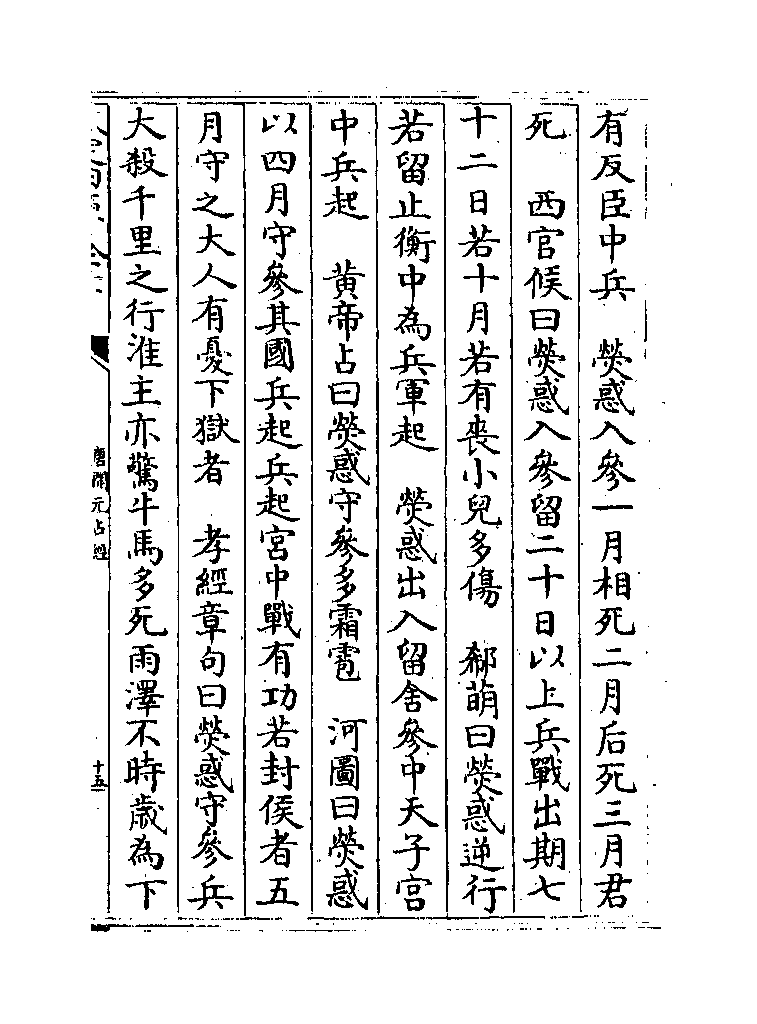 有反臣中兵　熒惑入參一月相死二月后死三月君
死　西官候曰熒惑入參留二十日以上兵戰出期七
十二日若十月若有喪小兒多傷　郗萌曰熒惑逆行
若留止衡中為兵軍起　熒惑出入留舍參中天子宮
中兵起　黄帝占曰熒惑守參多霜雹　河圖曰熒惑
以四月守參其國兵起兵起宮中戰有功若封侯者五
月守之大人有憂下獄者　孝經章句曰熒惑守參兵
大殺千里之行淮主亦驚牛馬多死雨澤不時歲為下
唐開元占經
十五